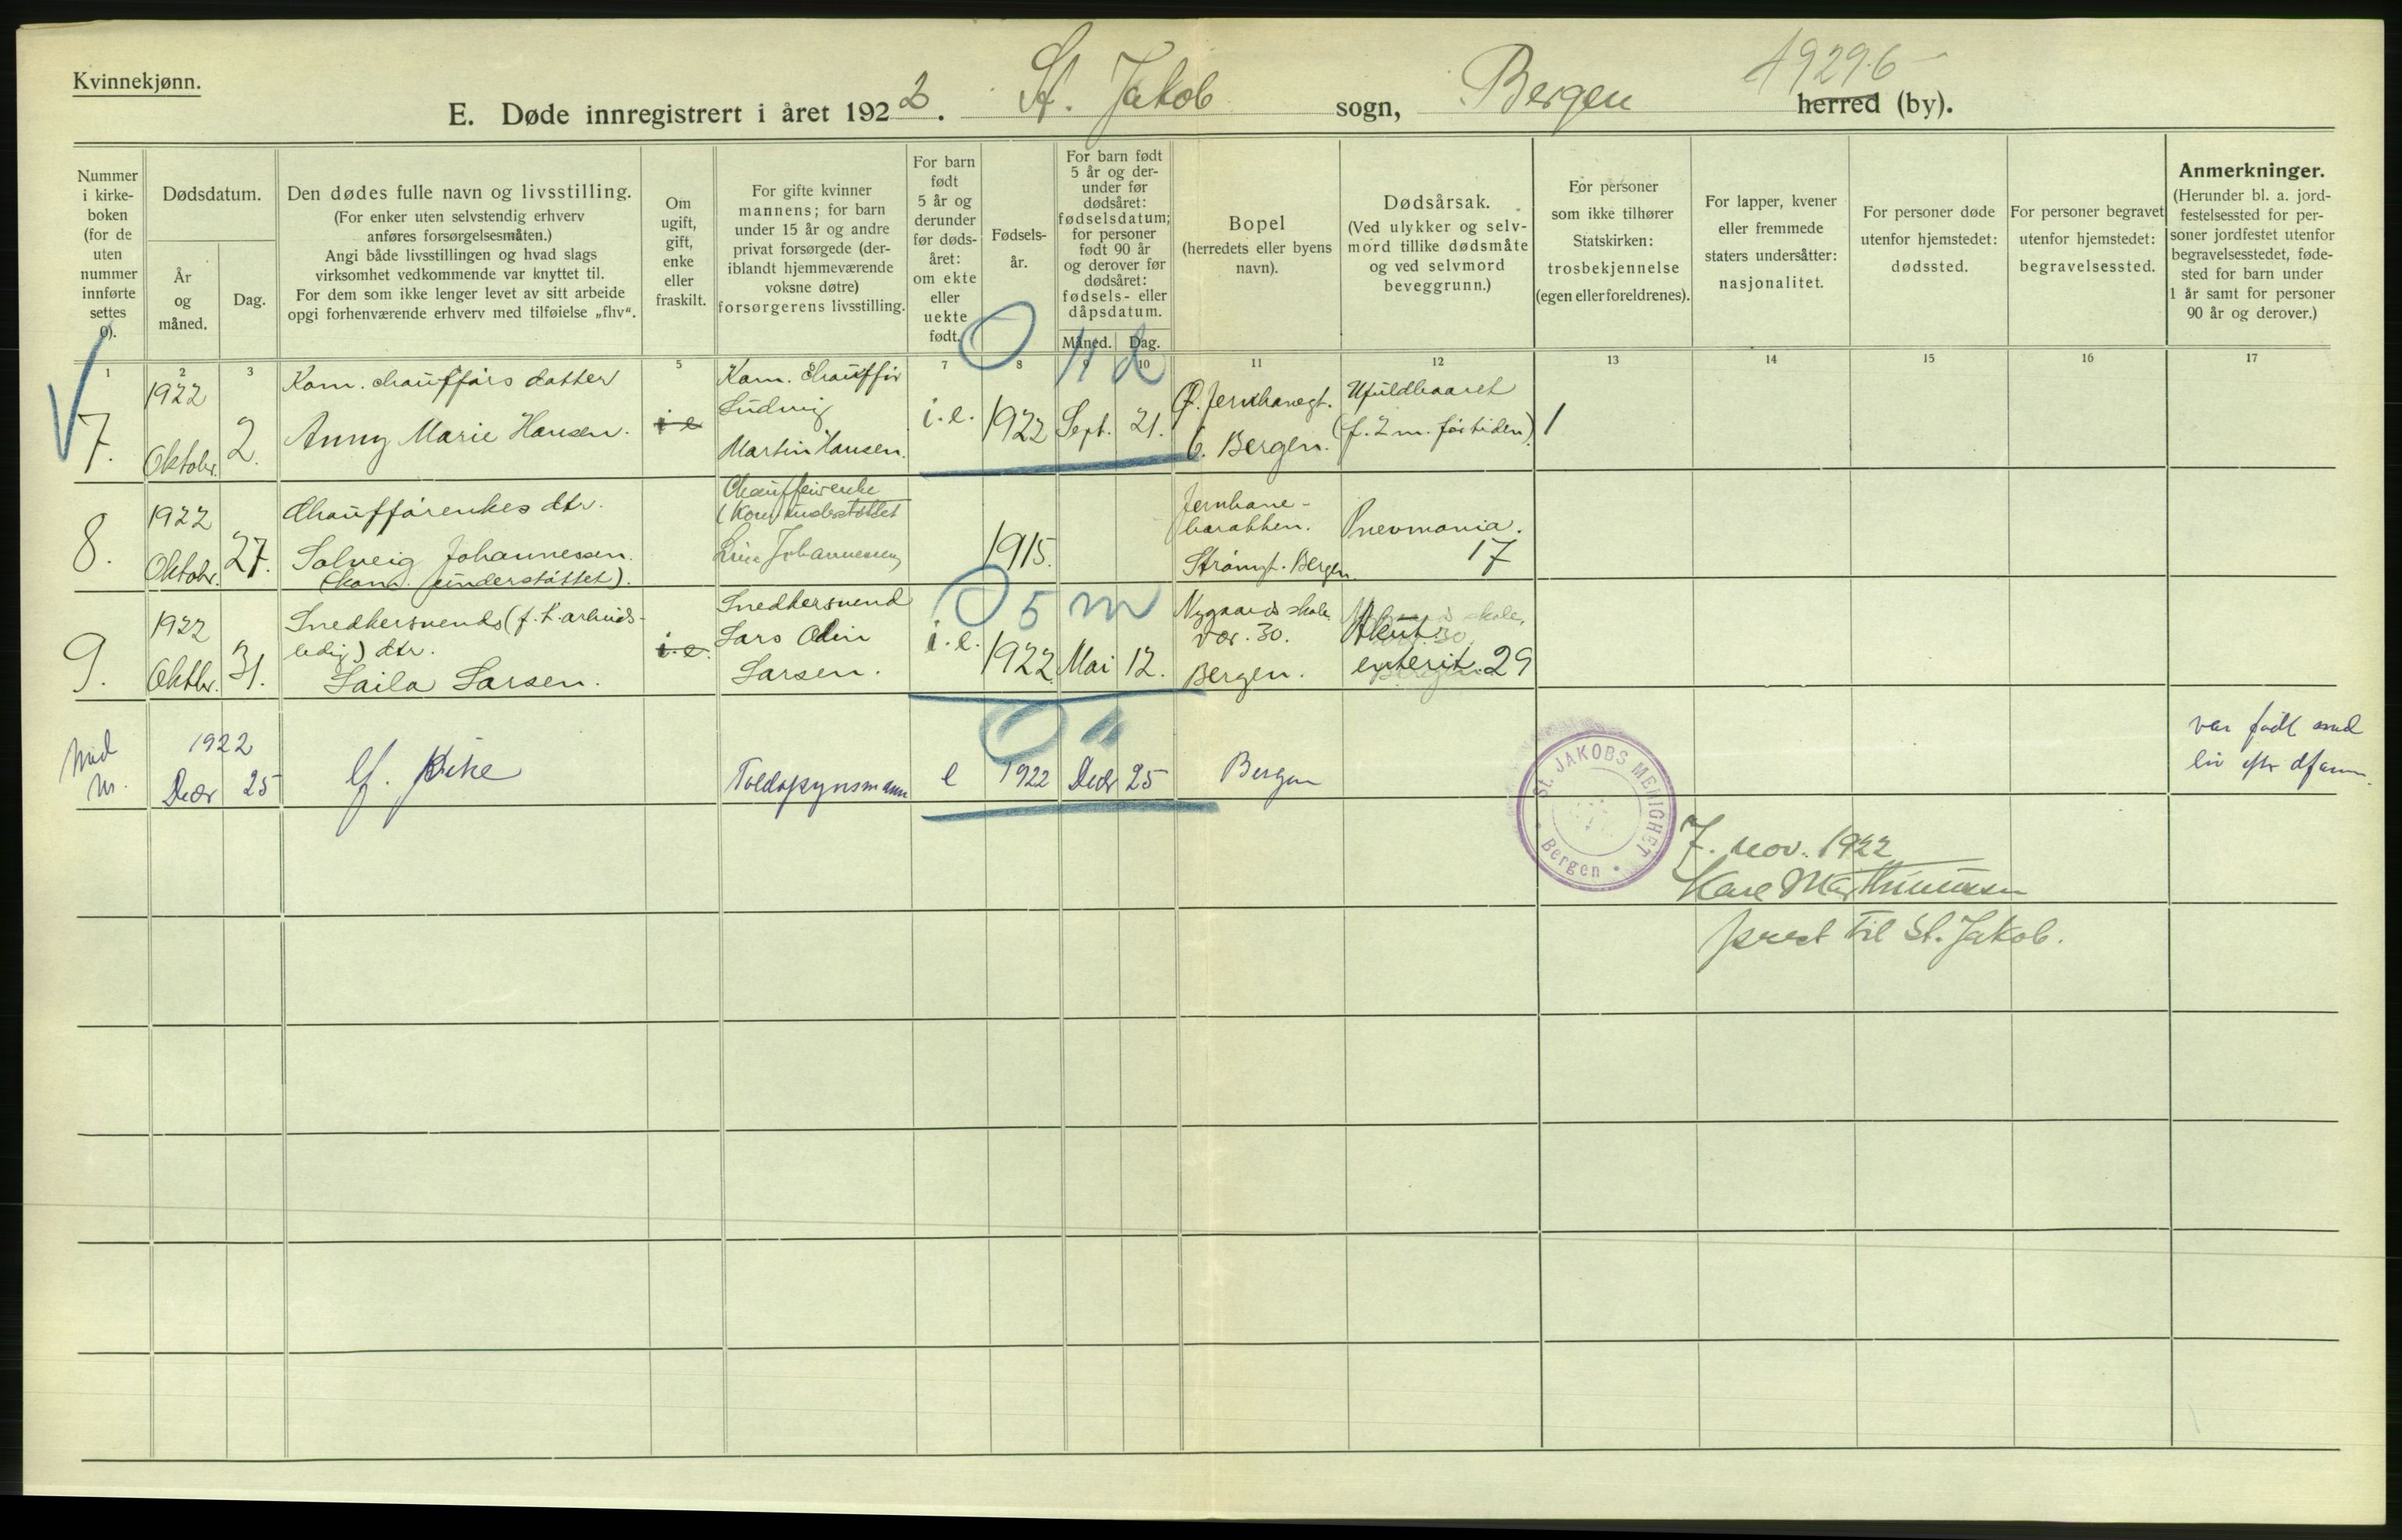 Kvinnekjønn.
49296
E. Døde innregistrert i året 1922. St. Jakob sogn, Bergen herred (by).
Nummer
i kirke-
boken
(for de
uten
nummer
innførte
settes
0).
Dødsdatum.
År
og
måned.
Dag.
Den dødes fulle navn og livsstilling.
(For enker uten selvstendig erhverv
anføres forsørgelsesmåten.)
Angi både livsstillingen og hvad slags
virksomhet vedkommende var knyttet til.
For dem som ikke lenger levet av sitt arbeide
opgi forhenværende erhverv med tilføielse „fhv“.
Om
ugift,
gift,
enke
eller
fraskilt.
For gifte kvinner
mannens; for barn
under 15 år og andre
privat forsørgede (der-
iblandt hjemmeværende
voksne døtre)
forsørgerens livsstilling.
For barn
født
5 år og
derunder
før døds-
året:
om ekte
eller
uekte
født.
Fødsels-
år.
For barn født
5 år og der-
under før
dødsåret:
fødselsdatum;
for personer
født 90 år
og derover før
dødsåret:
fødsels- eller
dåpsdatum.
Måned. Dag.
Bopel
(herredets eller byens
navn).
Dødsårsak.
(Ved ulykker og selv-
mord tillike dødsmåte
og ved selvmord
beveggrunn.)
For personer
som ikke tilhører
Statskirken:
trosbekjennelse
(egen eller foreldrenes).
For lapper, kvener
eller fremmede
staters undersåtter:
nasjonalitet.
For personer døde
utenfor hjemstedet:
dødssted.
For personer begravet
utenfor hjemstedet:
begravelsessted.
Anmerkninger.
(Herunder bl. a. jord-
festelsessted for per-
soner jordfestet utenfor
begravelsesstedet, føde-
sted for barn under
1 år samt for personer
90 år og derover.)
1 2 3 5 7 8 9 10 11 12 13 14 15 16 17
0 11 d
7.
1922
Oktobr. 2.
Kom. chaufførs datter
Anny Marie Hansen.
i e
Kom. chauffør
Ludvig
Martin Hansen.
i. e. 1922 Sept. 21.
Ø. Jernbanegt.
6. Bergen.
Ufuldbaaret
(f. 2 m. før tiden) 1
8.
1922
Oktobr. 27.
Chaufførenkes dtr.
Solveig Johannessen.
(kom. understøttet).
Chaufførenke
(Kom. understøttet
Johannessen
1915.
Jernbane-
barakken.
Strømgt. Bergen.
Pnevmonia.
17
0 5 m
9.
1922
Oktbr. 31.
Snedkersvends (f. t. arbeids-
ledig) dtr.
Laila Larsen.
i. e.
Snedkersvend
Lars Odin
Larsen.
i. e. 1922 Mai 12.
Nygaards skole
vær. 30.
Bergen.
Akut
enterit. 29
0 0
1922
Decbr 25
Toldopsynsmann
e 1922 Decbr 25
Bergen
var født med
liv efter
St. JAKOBS MENIGHET
Bergen
7. nov. 1922
prest til St. Jakob.